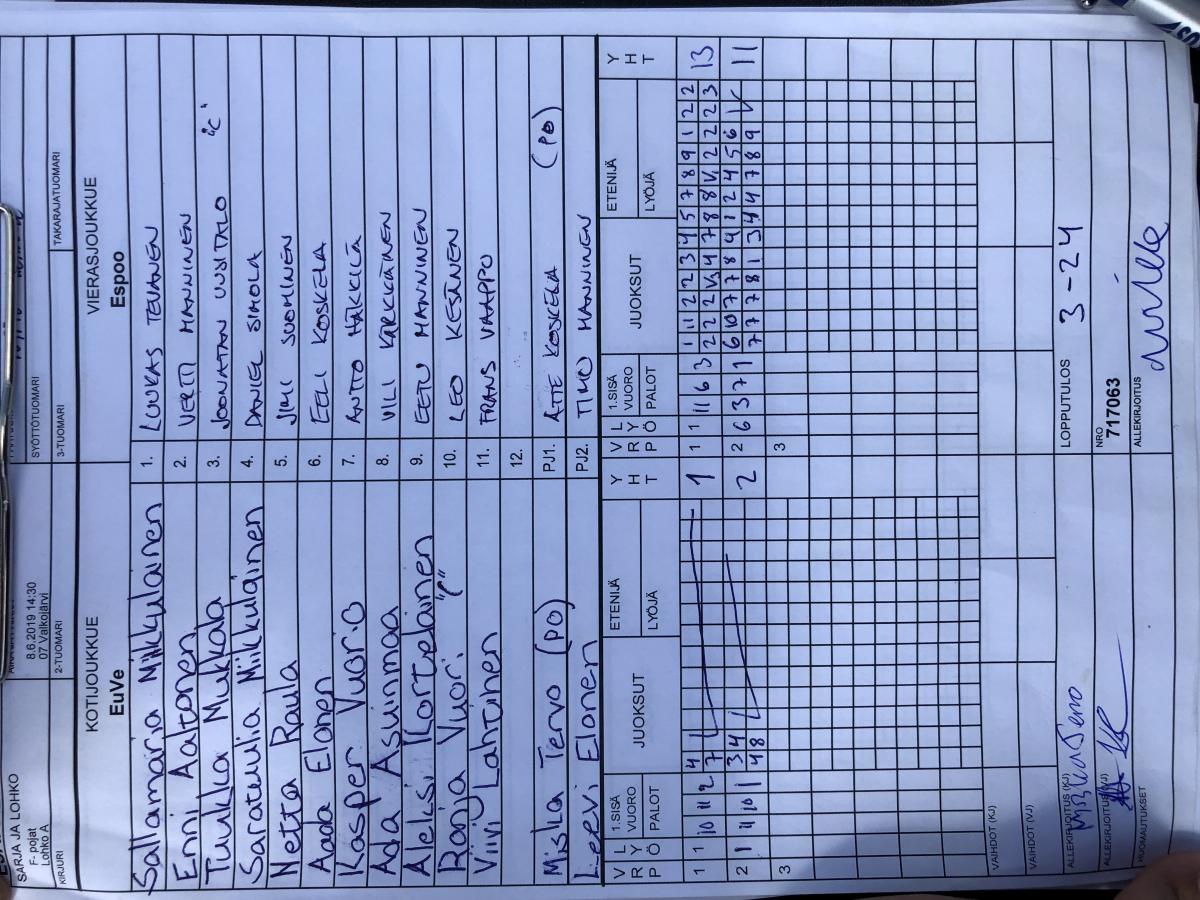 SARJA JA LOHKO
F- pojat
Lohko A
8.6.2019 14:30
07 Valkolärvi
SYÖTTÖTUOMARI
KIRJURI 2-TUOMARI 3-TUOMARI TAKARAJATUOMARI
KOTIJOUKKUE VIERASJOUKKUE
EuVe Espoo
Sallamaria Miikkulainen 1. LUUKAS TEVANEN
Enni Aaltonen 2. VERTI MANNINEN
Tuukka Mukkala 3. JOONATAN UUSITALO "C"
Saratuulia Miikkulainen 4. DANIEL SIMOLA
Netta Raula 5. JIMI SUOMINEN
Aada Elonen 6. EELI KOSKELA
Kasper Vuorio 7. ANTTO HÄKKILÄ
Ada Asuinmaa 8. VILI KÄRKKÄINEN
Aleksi Kortelainen 9. EETU MANNINEN
Ronja Vuori "C" 10. LEO KESÄNEN
Viivi Lahtinen 11. FRANS VAAPPO
12.
Miska Tervo (PO) PJ1. ATTE KOSKELA (PO)
Leevi Elonen PJ2. TIMO MANNINEN
V R P L Y Ö 1.SISÄ VUORO PALOT JUOKSUT ETENIJÄ LYÖJÄ Y H T V R P L Y Ö 1.SISÄ VUORO PALOT JUOKSUT ETENIJÄ LYÖJÄ Y H T
4 1 1 1 2 2 3 4 5 7 8 9 1 2 2
1 1 10 11 2 7 1 1 1 11 6 3 2 2 2 4 7 8 8 2 2 2 3 13
3 4 6 10 7 7 8 9 1 2 4 5 6
2 1 4 10 1 4 8 2 2 6 3 7 1 7 7 7 8 1 3 4 4 7 8 9 11
3 3
VAIHDOT (KJ)
VAIHDOT (VJ)
ALLEKIRJOITUS (KJ) Miska Tervo LOPPUTULOS 3-24
ALLEKIRJOITUS (VJ) NRO
717063
HUOMAUTUKSET ALLEKIRJOITUS